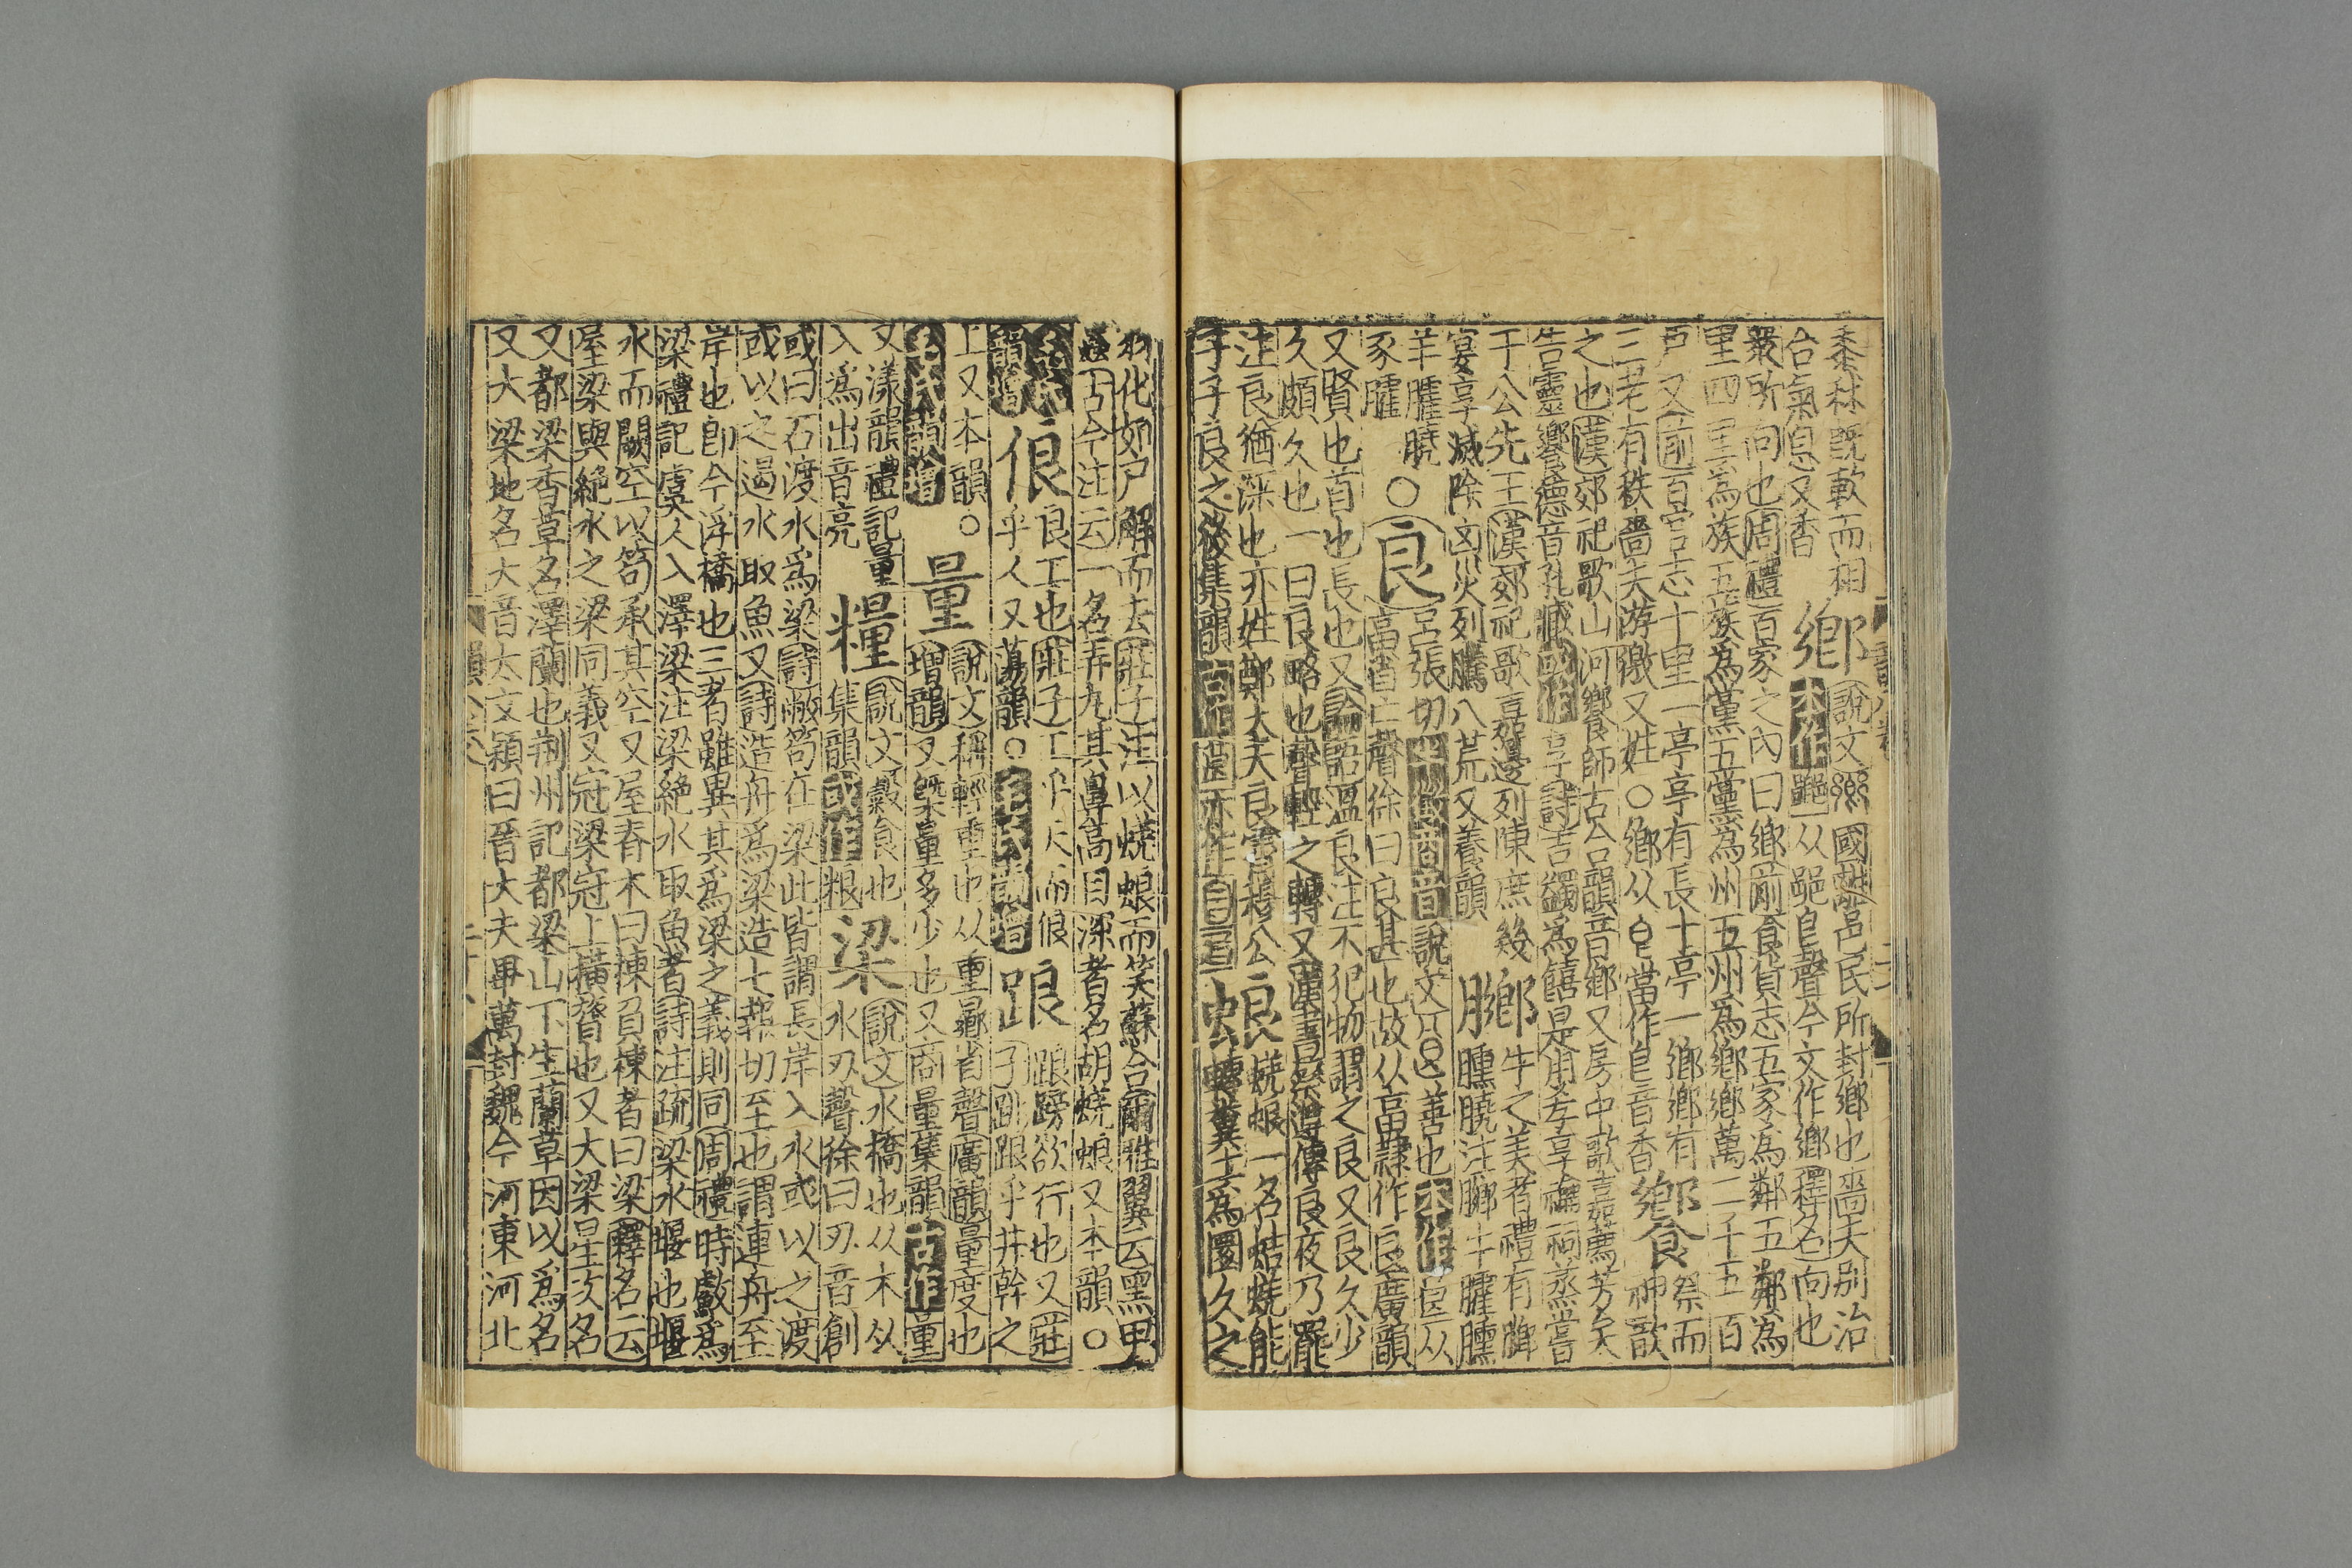 黍秫既軟而相
合氣息又香
鄉
說文國離邑民所封鄉也嗇夫別治
本作从𨛜皀聲今文作鄉釋名向也
眾所向也周禮百家之內曰鄉前食貨志五家為鄰五鄰為
里四里為族五族為黨五黨為州五州為鄉鄉萬二千五百
戶又前百官志十里一亭亭有長十亭一鄉鄉有
三老有秩嗇夫游徼又姓○鄉从皀當作皀音香
饗
祭而
神歆
之也漢郊祀歌山河饗師古合韻音鄉又房中歌嘉薦芳矣
告靈饗德音孔臧或作享詩吉蠲爲饎是用孝享禴祠蒸嘗
于公先王漢郊祀歌嘉籩列陳庶幾
宴享滅除凶災列騰八荒又養韻
膷
牛之美者禮有膷
臐膮注膷牛臛臐
羊臛膮
豕臛
○
良
呂張切半徵商音說文善也本作从
畗省亡聲徐曰良甚也故从畗隸作良廣韻
又賢也首也長也又論語溫良注不犯物謂之良又良久少
久頗久也一曰良略也聲輕之轉又漢書祭遵傳良夜乃罷
注良猶深也亦姓鄭大夫良霄穆公
子子良之後集韻古作亦作
蜋
蜣蜋一名蛣蜣能
轉糞土爲圜久之
羽化如尸解而去莊子注以蜣蜋而笑蘇合爾雅翼云黑甲
蟲古今注云一名弄丸其鼻高目深者名胡蜣蜋又本韻○
毛氏
韻增
俍
良工也莊子工乎天而俍
乎人又蕩韻○毛氏韻增
踉
踉蹡欲行也又莊
子跳踉乎井幹之
上又本韻○
毛氏韻增
量
說文稱輕重也从重曏省聲廣韻量度也
增韻又槩量多少也又商量集韻古作量
又漾韻禮記量
入爲出音亮
糧
說文穀食也
集韻或作粮
梁
說文水橋也从木从
水刃聲徐曰刃音創
或曰石渡水爲梁詩敝笱在梁此皆謂長岸入水或以之渡
或以之遏水取魚又詩造舟爲梁造七燕切至也謂連舟至
岸也卽今浮橋也三者雖異其爲梁之義則同周禮時㪺爲
梁禮記虞人入澤梁注梁絕水取魚者詩注疏梁水堰也堰
水而闕空以笱承其空又屋脊木曰棟負棟者曰梁釋名云
屋梁與絕水之梁同義又冠梁冠上橫脊也又大梁星次名
又都梁香草名澤蘭也荊州記都梁山下生蘭草因以爲名
又大梁地名大音太文穎曰晉大夫畢萬封魏今河東河北